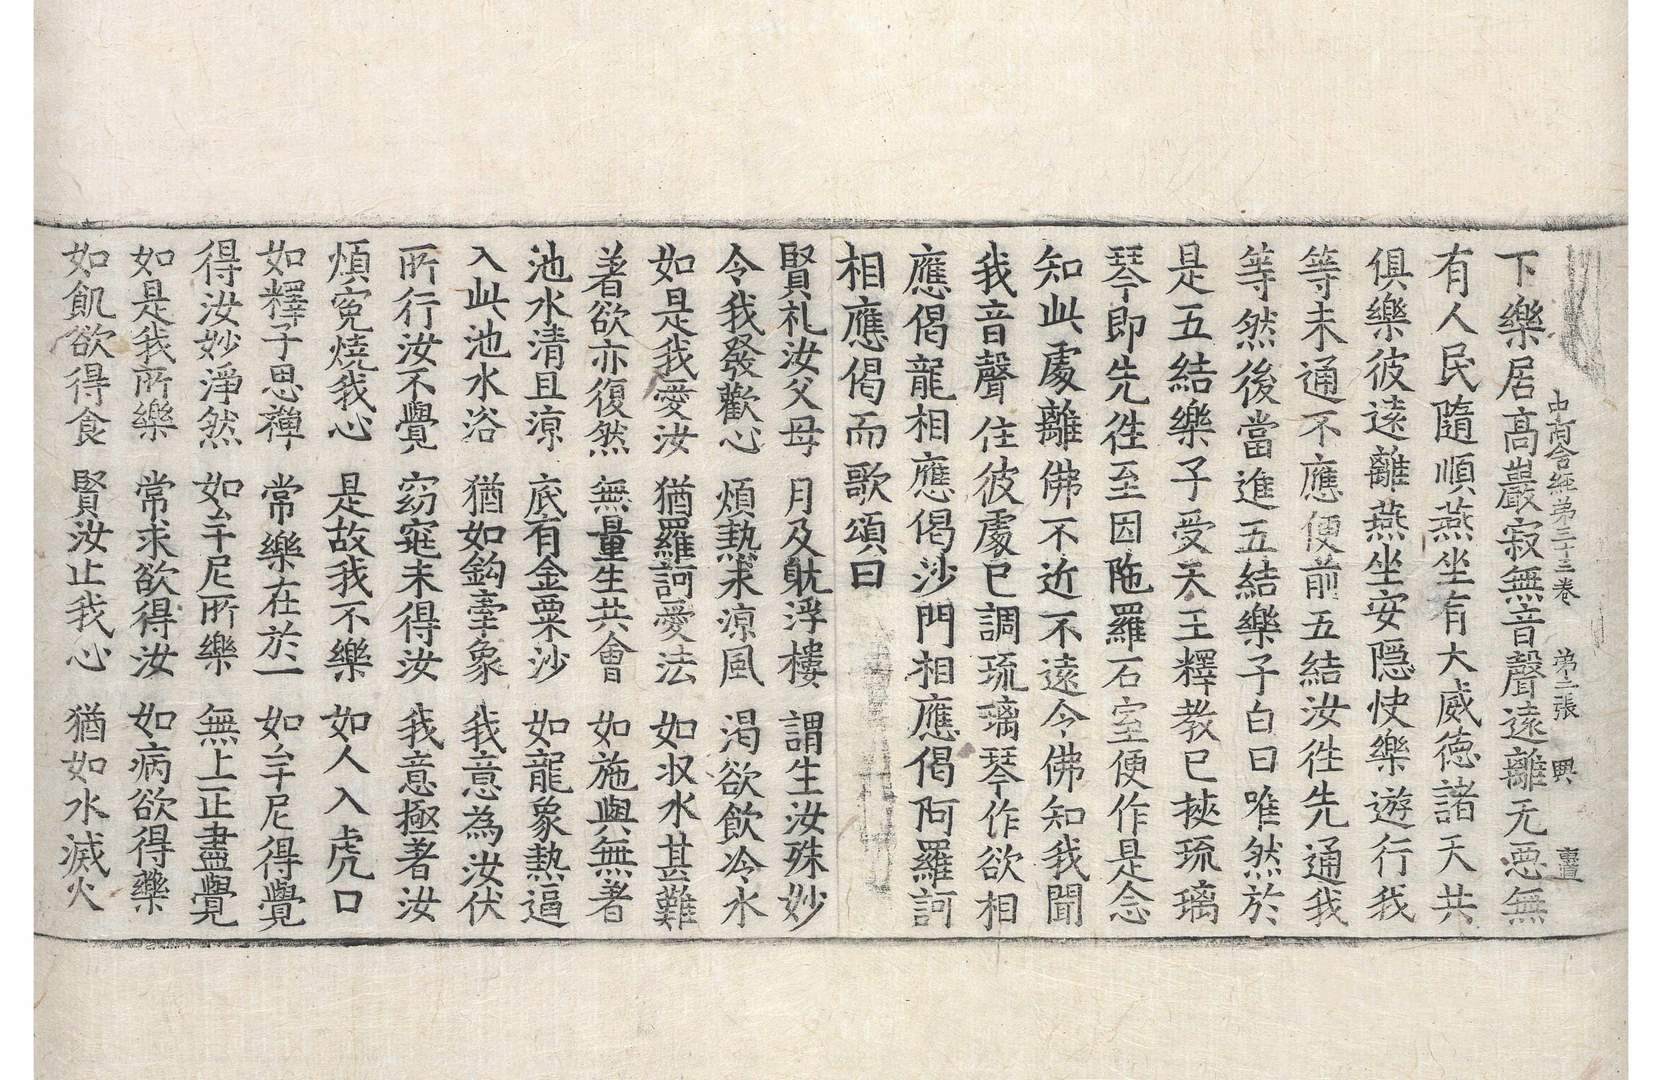 中阿含經第三十三卷 第二張 興
下樂居高巖寂無音聲遠離无惡無
有人民隨順燕坐有大威德諸天共
俱樂彼遠離燕坐安隱快樂遊行我
等未通不應便前五結汝徃先通我
等然後當進五結樂子白曰唯然於
是五結樂子受天王釋教已挾琉璃
琴即先徃至因陁羅石室便作是念
知此處離佛不近不遠令佛知我聞
我音聲住彼處已調琉璃琴作欲相
應偈龍相應偈沙門相應偈阿羅訶
相應偈而歌頌曰
賢礼汝父母 月及躭浮樓 謂生汝殊妙
令我發歡心 煩熱求涼風 渴欲飲冷水
如是我愛汝 猶羅訶愛法 如收水甚難
著欲亦復然 無量生共會 如施與無著
池水清且涼 底有金粟沙 如龍象熱逼
入此池水浴 猶如鈎牽象 我意為汝伏
所行汝不覺 窈窕未得汝 我意極著汝
煩冤燒我心 是故我不樂 如人入虎口
如釋子思禪 常樂在於一 如牟尼得覺
得汝妙淨然 如牟尼所樂 無上正盡覺
如是我所樂 常求欲得汝 如病欲得藥
如飢欲得食 賢汝止我心 猶如水滅火